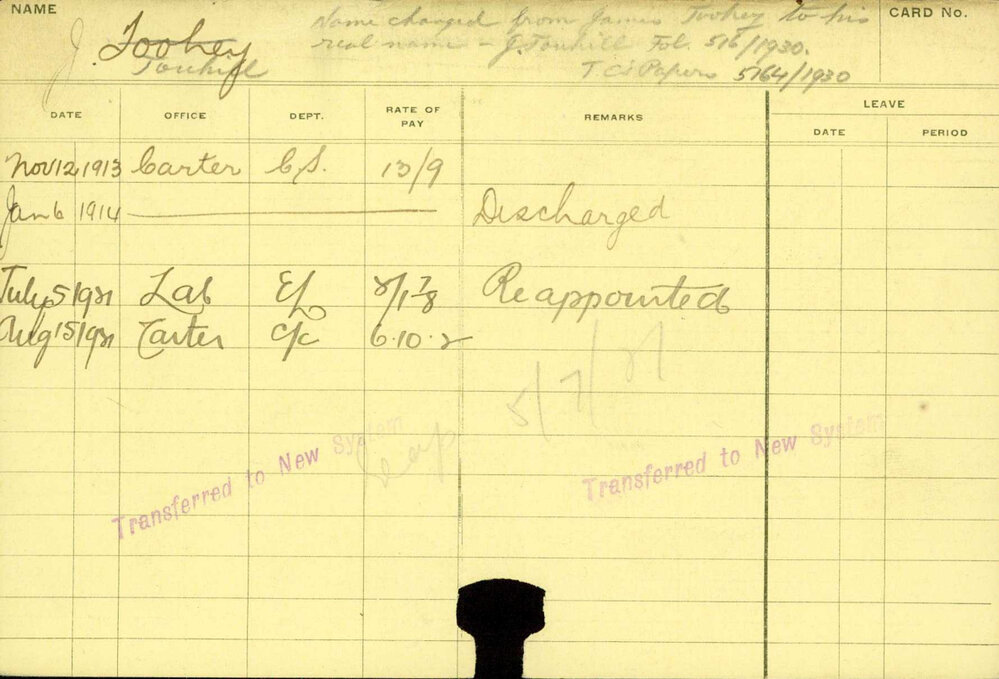 NAME
Name changed from James Toohey to his
real name - J. Touhill Fol. 516/1930.
T C's Papers 5764/1930
CARD No.
J. Toohey
Touhill
DATE OFFICE DEPT. RATE OF PAY REMARKS LEAVE
DATE PERIOD
Nov 12 1913 Carter C.S. 13/9
Jan 6 1914 Discharged
July 5 1921 Lab Reappointed
Aug 15 1921 Carter C/C 6.10.2
5/7/21
Transferred to New System
Transferred to New System